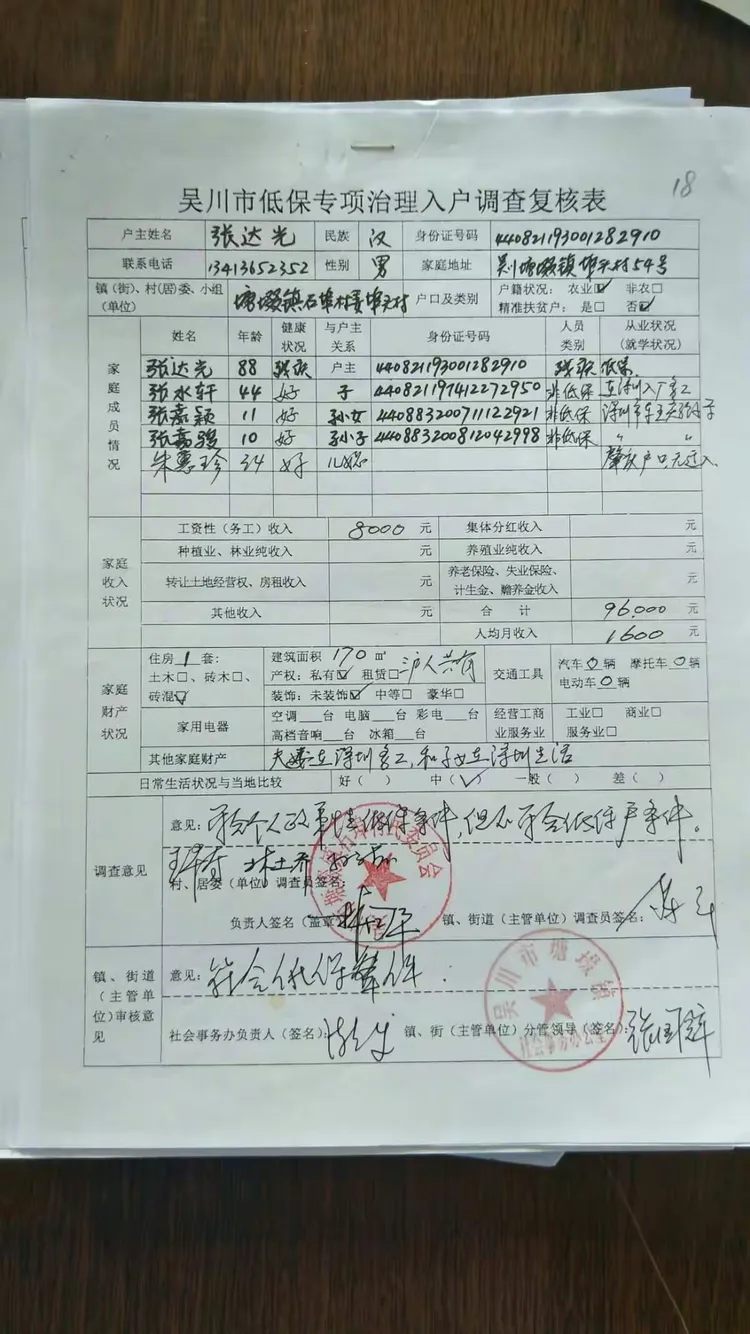 18
吴川市低保专项治理入户调查复核表
户主姓名 张达光 民族 汉 身份证号码 440821193001282910
联系电话 13413652352 性别 男 家庭地址 吴川塘㙍镇 村54号
镇(街)、村(居)委、小组(单位) 塘㙍镇石埠村委埠头村 户口及类别 户籍状况:农业☑ 非农□
精准扶贫户:是□ 否☑
家庭成员情况 姓名 年龄 健康状况 与户主关系 身份证号码 人员类别 从业状况(就学状况)
张达光 88 残疾 户主 440821193001282910 残疾 低保
张水轩 44 好 子 440821197412272950 非低保 在深圳入厂务工
张嘉颖 11 好 孙女 440883200711122921 非低保 深圳市
张嘉骏 10 好 孙小子 440883200812042998 非低保 〃 〃
朱惠珍 34 好 儿媳 肇庆户口,无迁入
家庭收入状况 工资性(务工)收入 8000 元 集体分红收入 元
种植业、林业纯收入 元 养殖业纯收入 元
转让土地经营权、房租收入 元 养老保险、失业保险、计生金、赡养金收入 元
其他收入 元 合计 96.000 元
人均月收入 1600 元
家庭财产状况 住房 1 套: 土木□、砖木□、砖混☑ 建筑面积 170 ㎡ 交通工具 汽车 0 辆 摩托车 0 辆
产权:私有☑ 租赁□ 人共有 电动车 0 辆
装饰:未装饰☑ 中等□ 豪华□
家用电器 空调___台 电脑___台 彩电___台 经营工商业服务业 工业□ 商业□
高档音响___台 冰箱___台 服务业□
其他家庭财产 夫妻在深圳务工,和子女在深圳生活
日常生活状况与当地比较 好( ) 中(✓) 一般( ) 差( )
调查意见 意见:符合个人政 低保条件,但不符合低保户条件。
村、居委(单位)调查员签名:
负责人签名(盖章) 镇、街道(主管单位)调查员签名:
镇、街道(主管单位)审核意见 意见:符合低保 条件.
社会事务办负责人(签名): 镇、街(主管单位)分管领导(签名):
吴川市塘㙍镇
社会事务办公室